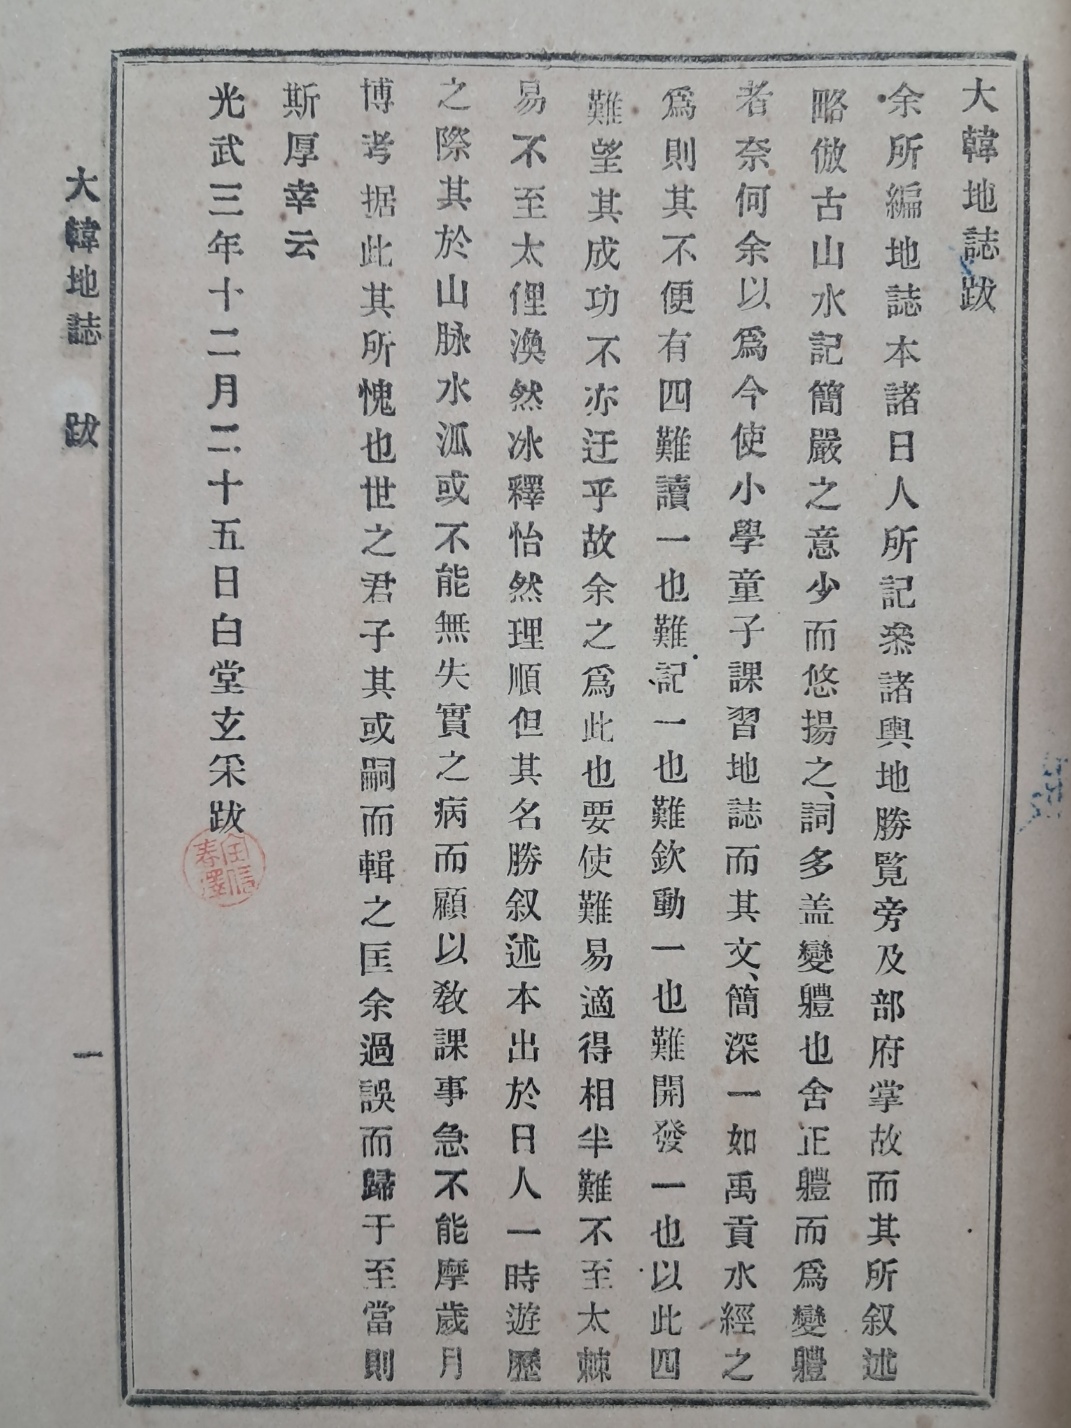 大韓地誌跋
余所編地誌本諸日人所記叅諸輿地勝覧旁及部府掌故而其所叙述
略倣古山水記簡嚴之意少而悠揚之、詞多盖變軆也舍正軆而爲變軆
者奈何余以爲今使小學童子課習地誌而其文、簡深一如禹貢水經之
爲則其不便有四難讀一也難記一也難欽動一也難開發一也以此四
難望其成功不亦迂乎故余之爲此也要使難易適得相半難不至太棘
易不至太俚渙然冰釋怡然理順但其名勝叙述本出於日人一時遊歷
之際其於山脉水泒或不能無失實之病而顧以敎課事急不能摩歲月
博考据此其所愧也世之君子其或嗣而輯之匡余過誤而歸于至當則
斯厚幸云
光武三年十二月二十五日白堂玄采跋
大韓地誌 跋
一